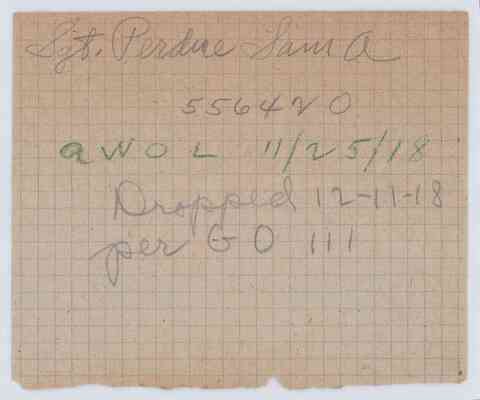 Sgt. Perdue Sam A
556420
AWOL 11/25/18
Dropped 12-11-18
per GO 111